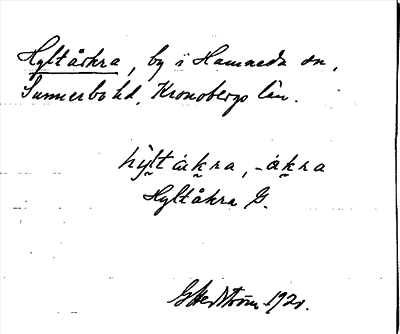 Hyltåkra, by i Hamneda sn,
Sunnerbo hd, Kronobergs län.
hyltåkra, -åkra
Hyltåkra G.
G Hedström 1920.